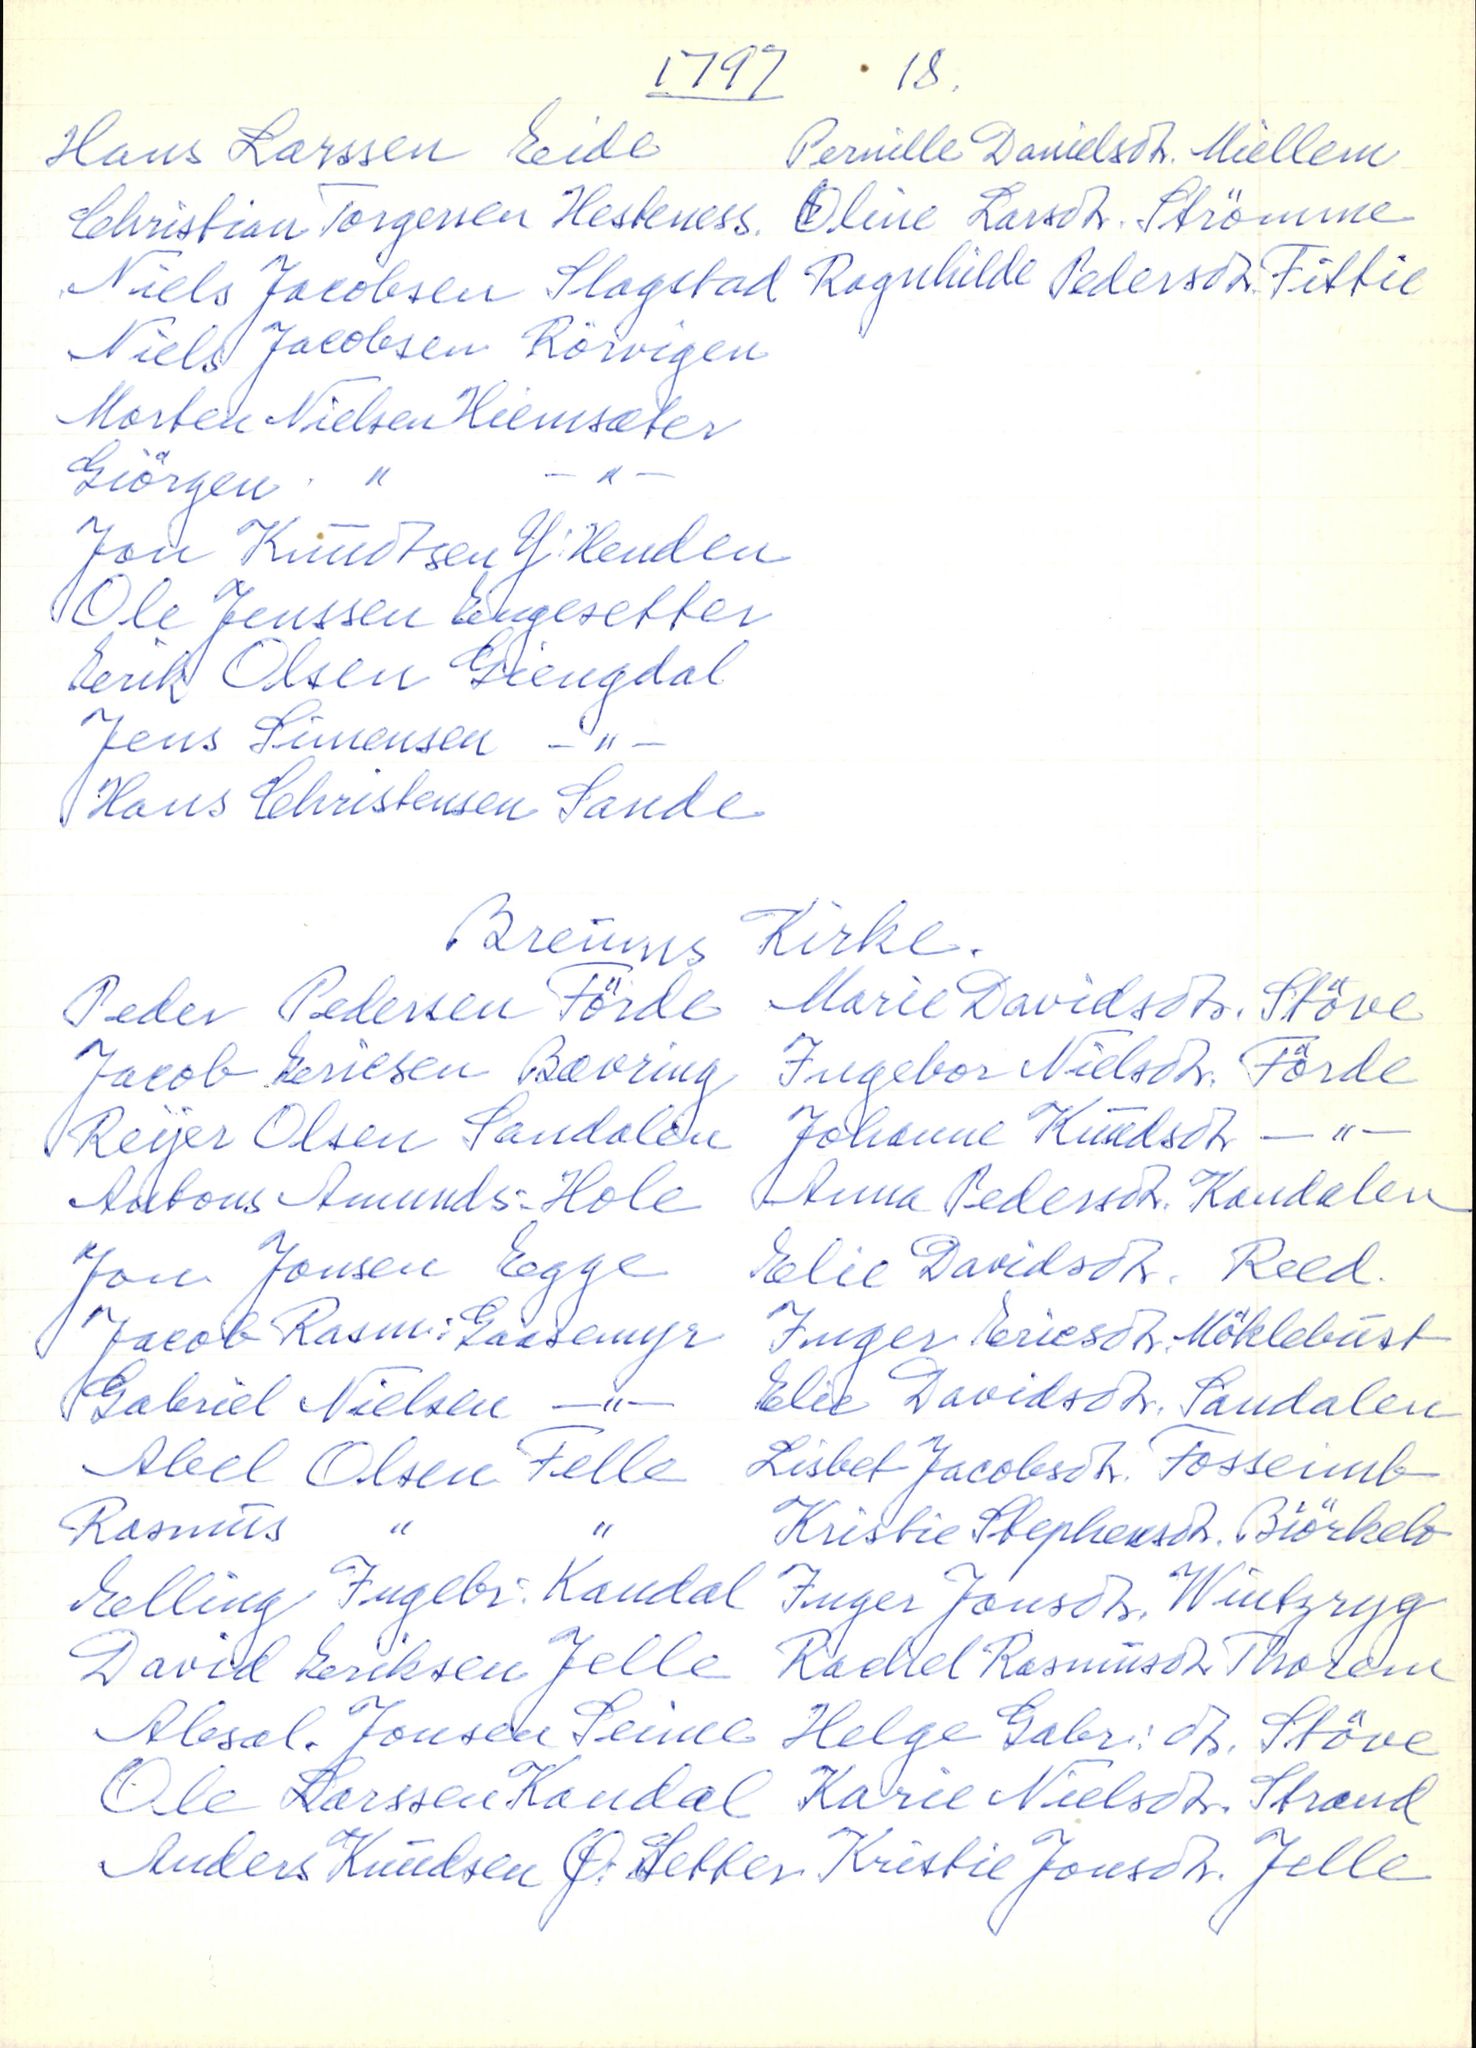 1797 · 18.
Hans Larssen Eide Pernille Danielsdtr. Miellem
Christian Torgersen Hesteness. Oline Larsdtr. Strömme
Niels Jacobsen Slagstad Ragnhilde Pedersdtr. Fittie
Niels Jacobsen Rörvigen
Morten Nielsen Hiemsæter
Giörgen " — " —
Jon Knudtsen Y: Henden
Ole Jenssen Engesetter
Eerik Olsen Giengdal
Jens Simensen — " —
Hans Christensen Sande
Breums Kirke.
Peder Pedersen Förde Marie Davidsdtr. Støve
Jacob Ericsen Bævring Ingebor Nielsdtr. Förde
Reijer Olsen Sandalen Johanne Knudsdtr — " —
Antons Amunds:- Hole Anna Pedersdtr. Kandalen
Jon Jonsen Egge Elie Davidsdtr. Reed.
Jacob Rasm: Gaasemyr Inger Ericsdtr. Möklebust
Gabriel Nielsen — " — Elie Davidsdtr. Sandalen
Abel Olsen Felle Lisbet Jacobsdtr. Fosseimb
Rasmus " " Kristie Stephensdtr. Biörkelo
Elling Ingebr:- Kandal Inger Jonsdtr. Wintzryg
David Eriksen Jelle Rachel Rasmusdtr Thorem
Absal. Jonsen Seime Helge Gabr: dtr. Stöve
Ole Larssen Kandal Karie Nielsdtr. Strand
Anders Knudsen Ø. Setter Kristie Jonsdtr. Jelle